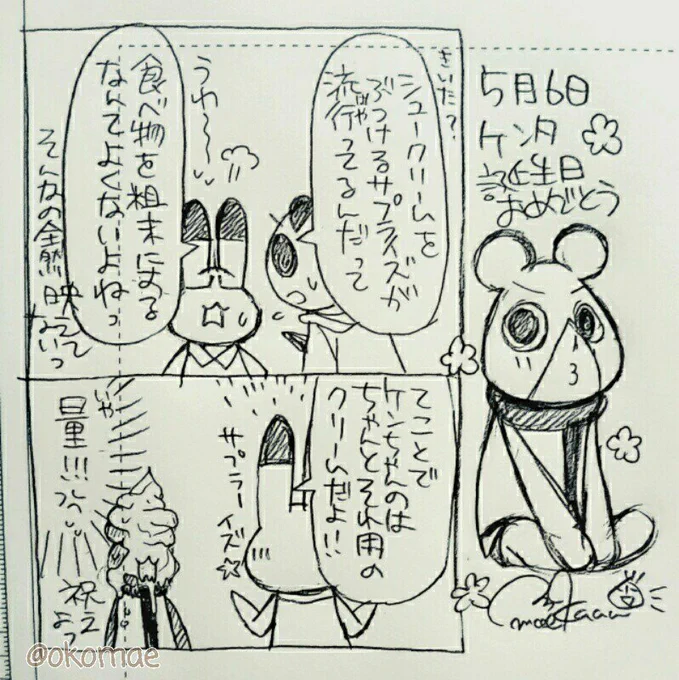 5月6日
ケンタ
誕生日
おめでとう
きいた?
シュークリームを
ぶつけるサプライズが
流行ってるんだって
はや
うわ〜〜
食べ物を粗末にする
なんてよくないよねっ
そんなの全然映えて
ないっ
てことで
ケンちゃんのは
ちゃんとそれ用の
クリームだよ!!
サプラーイズ☆
いや
量!!!
祝え
よっ
@okomae